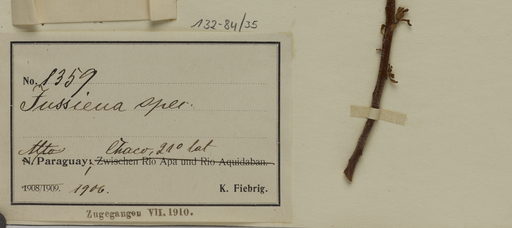 132-84/35
No. 1359
Jussiena spec.
Alto Chaco, 21° lat
N. Paraguay, Zwischen Rio Apa und Rio Aquidaban.
1908/1909. 1906. K. Fiebrig.
Zugegangen VII. 1910.